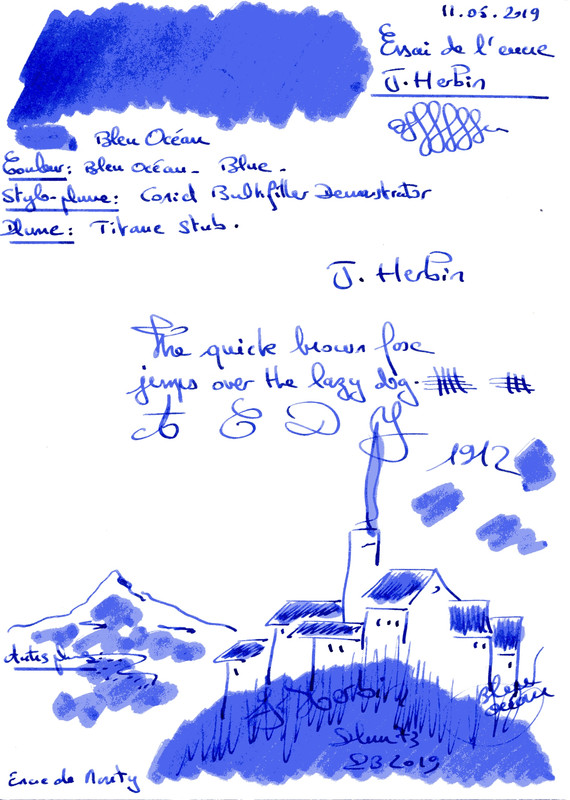 11.05.2019
Essai de l'encre
J. Herbin
Bleu Océan
Couleur: Bleu Océan - Blue -
Stylo-plume: Conid Bulkfiller Demonstrator
Plume: Titane Stub.
J. Herbin
The quick brown foxe
jumps over the lazy dog.
A E D Y
1912
J. Herbin
Bleu
océan
2019
Encre de